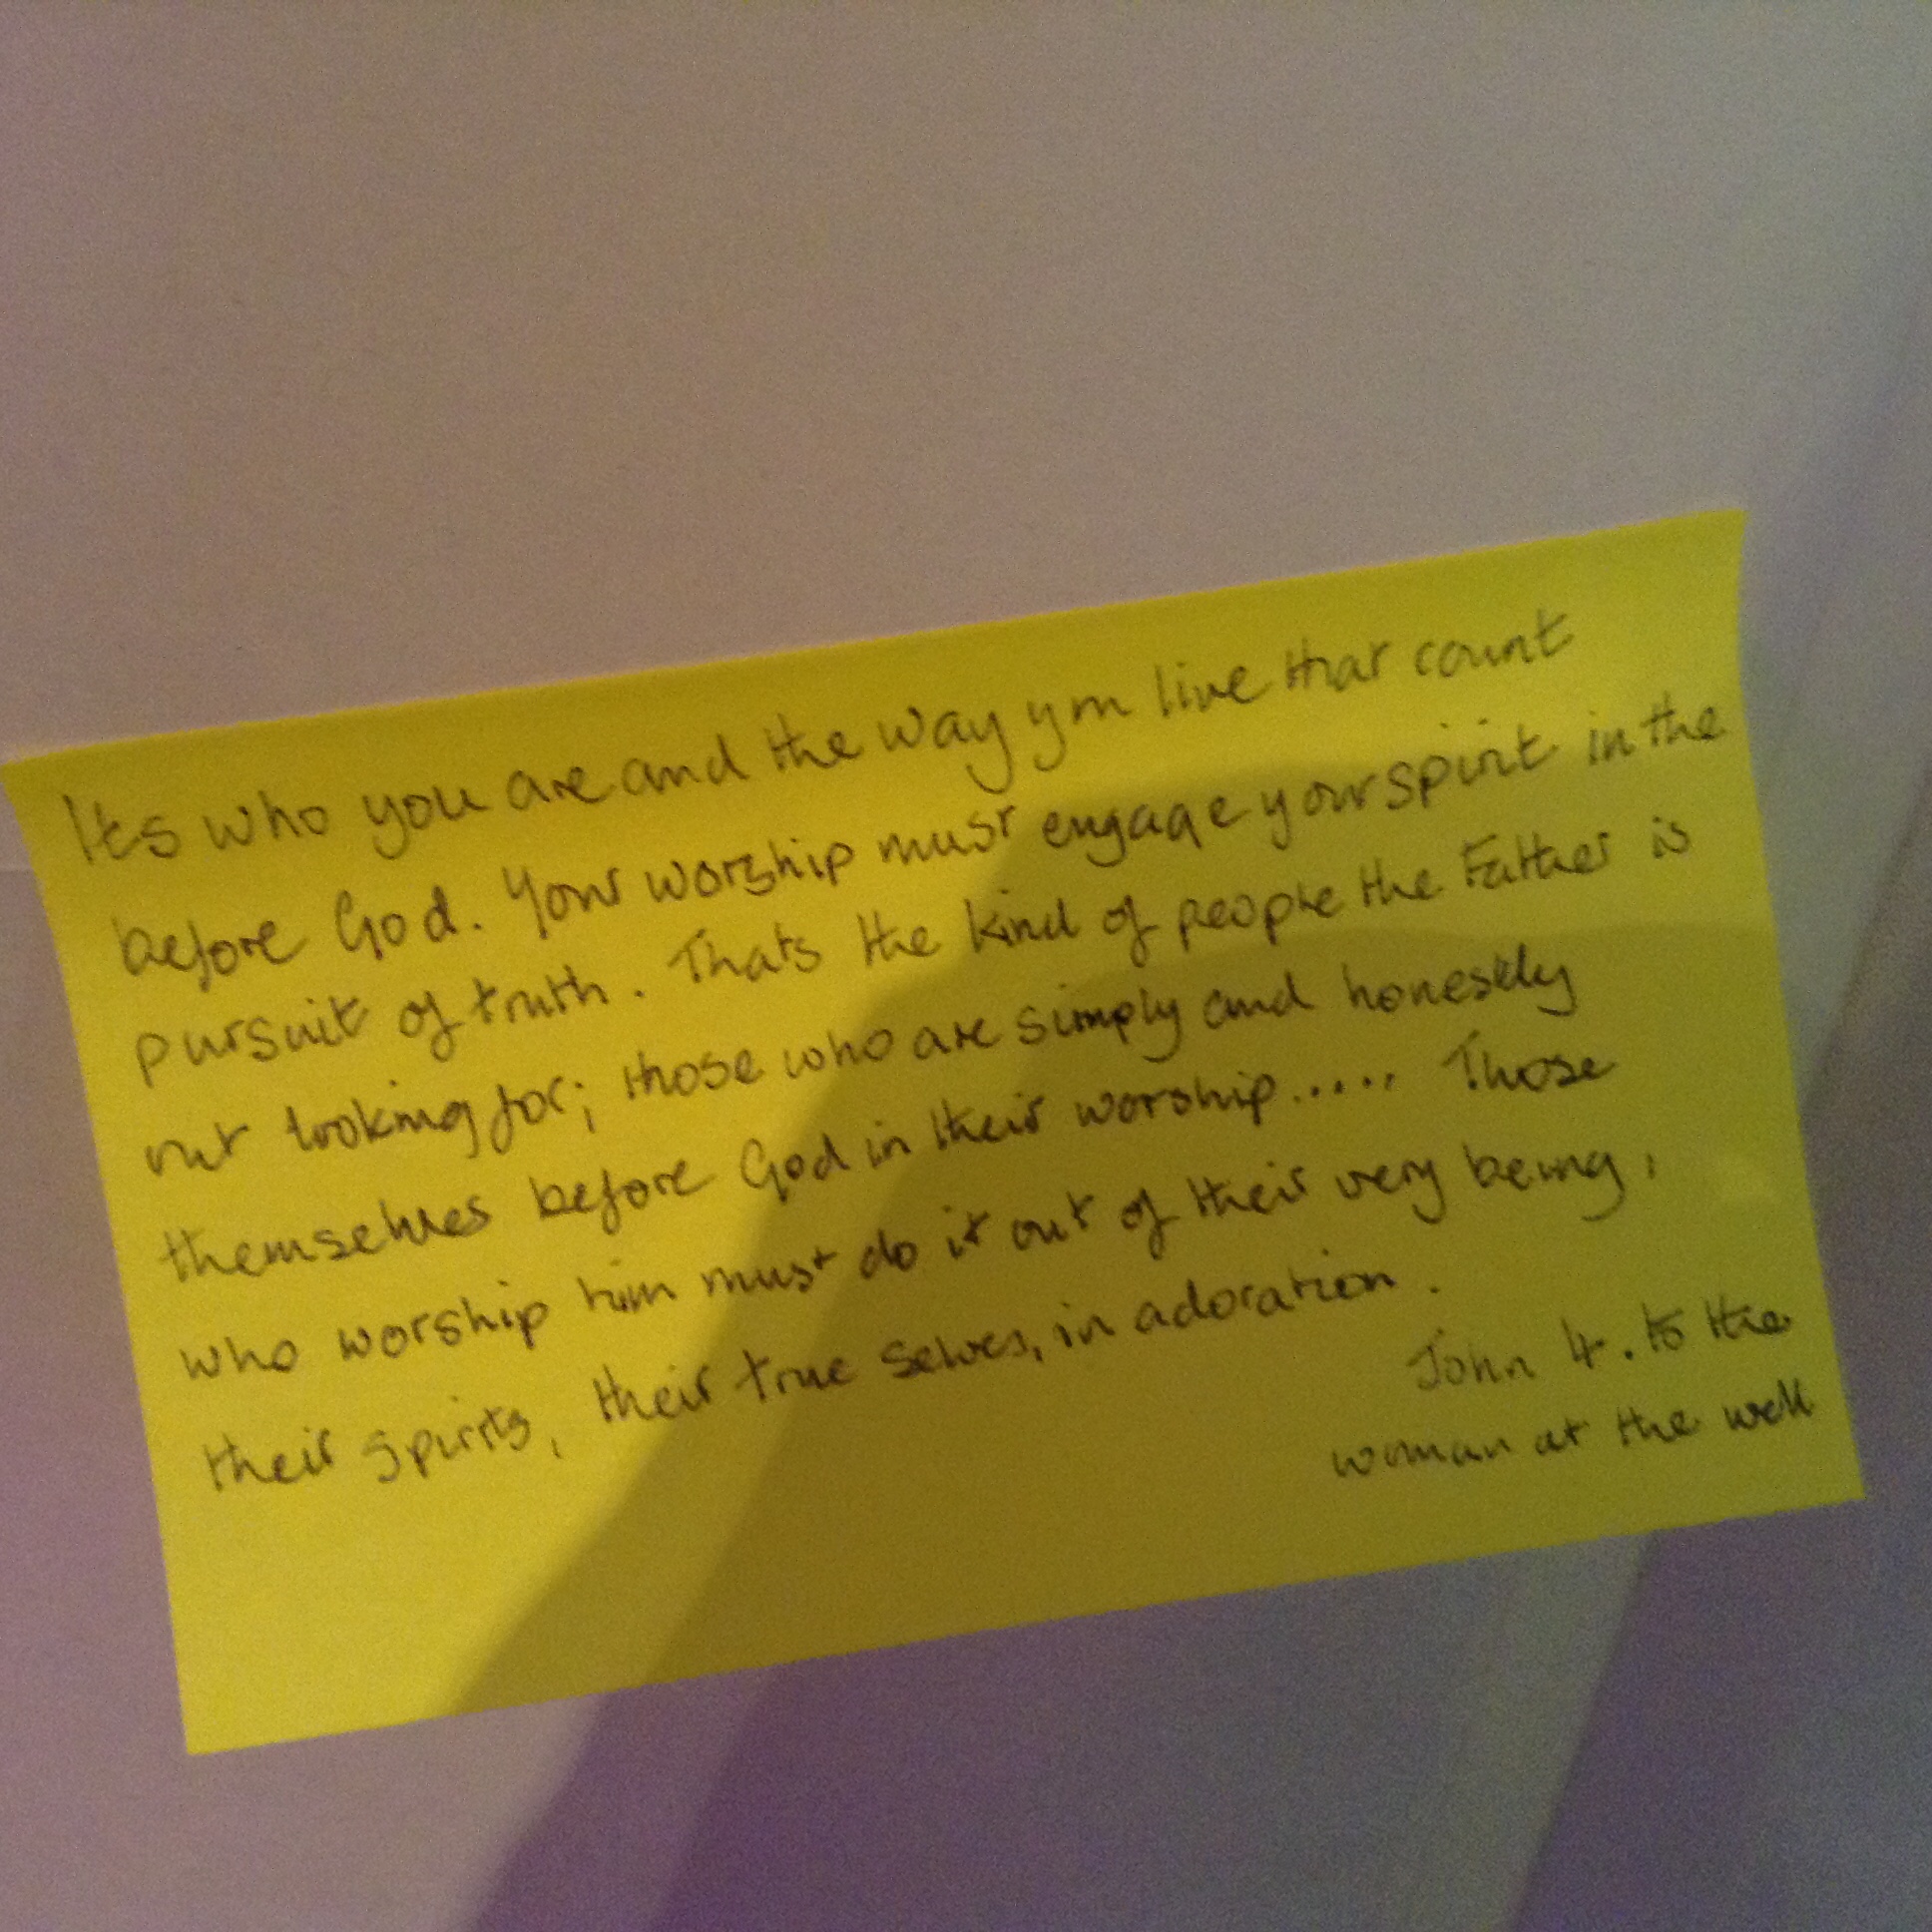 Its who you are and the way you live that count
before God. Your worship must engage your spirit in the
pursuit of truth. Thats the kind of people the Father is
out looking for; those who are simply and honestly
themselves before God in their worship..... Those
who worship him must do it out of their very being,
their spirits, their true selves, in adoration.
John 4. to the
woman at the well